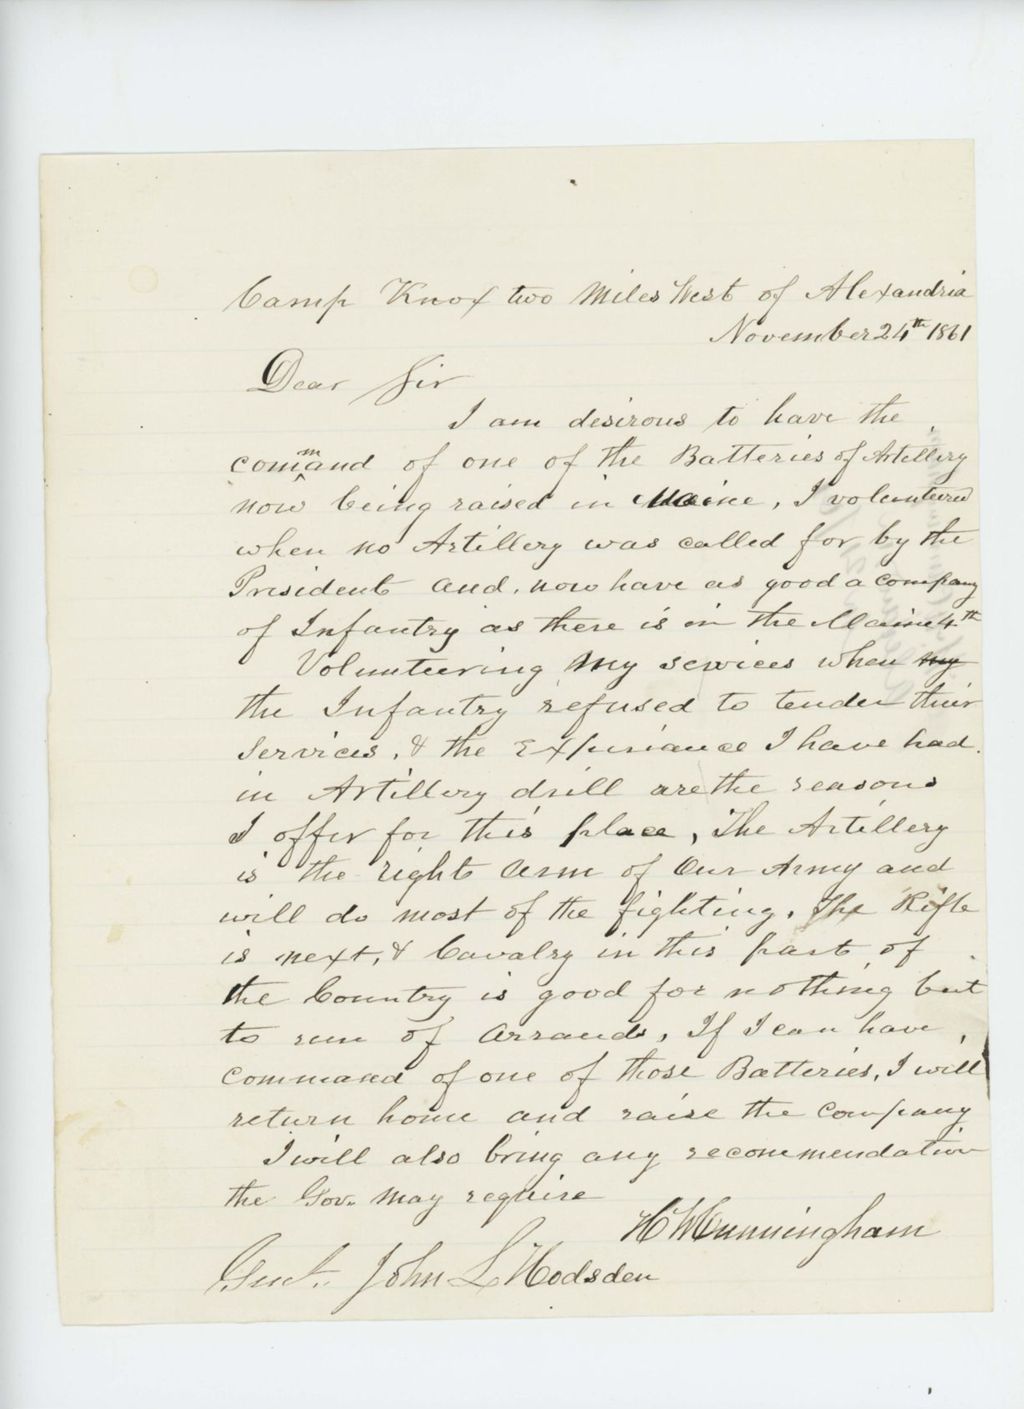 Camp Knox two Miles West of Alexandria
November 24th 1861
Dear Sir
I am desirous to have the
command of one of the Batteries of Artillery
now being raised in Maine, I volunteered
when no Artillery was called for by the
President and, now have as good a company
of Infantry as there is in the Maine 4th
Volunteering My services when my
the Infantry refused to tender their
Services, & the Experiance I have had
in Artillery drill are the reasons
I offer for this place, The Artillery
is the right Arm of Our Army and
will do most of the fighting. The Rifle
is next, & Cavalry in this part of
the Country is good for nothing but
to run of Arrands, If I can have
command of one of those Batteries, I will
return home and raise the Company
I will also bring any recommendation
the Gov. May require
H W Cunningham
Genl. John L Hodsden